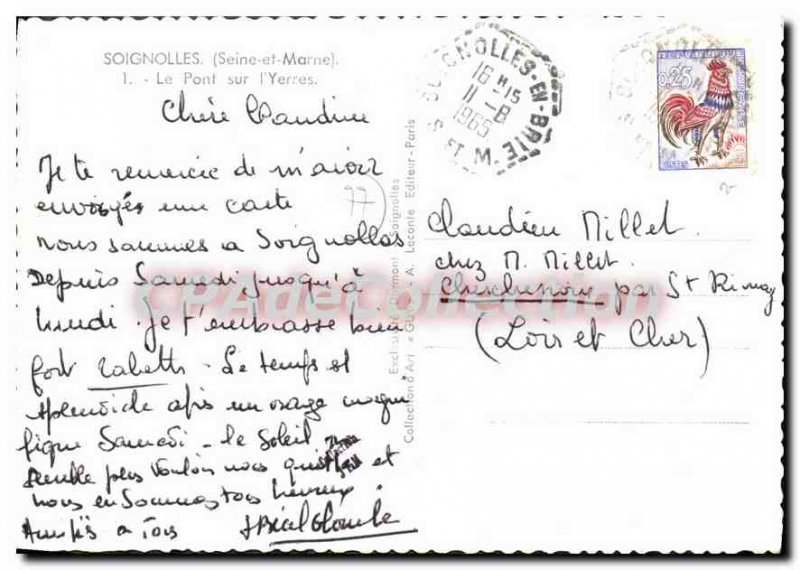 SOIGNOLLES. (Seine-et-Marne).
1. - Le Pont sur l'Yerres.
Chère Claudine
Je te remercie de m'avoir
envoyés une carte
nous sommes a Soignolles
Depuis Samedi jusqu'à
lundi. Je t'embrasse bien
fort Le temps est
splendide après un orage magni
fique Samedi - le Soleil
semble plus vouloir nous quitter et
nous en Sommes tous heureux.
Amitiés a Tous
77
Exclusivité Soignolles
Collection d'Art « GUY » - A. Leconte Editeur - Paris
SOIGNOLLES-EN-BRIE
16 H 15
11 -8
1965
S. ET M.
0,25
Claudine Millet
chez M. Millet
par St Rimay
(Loir et Cher)
CPAdeCollection